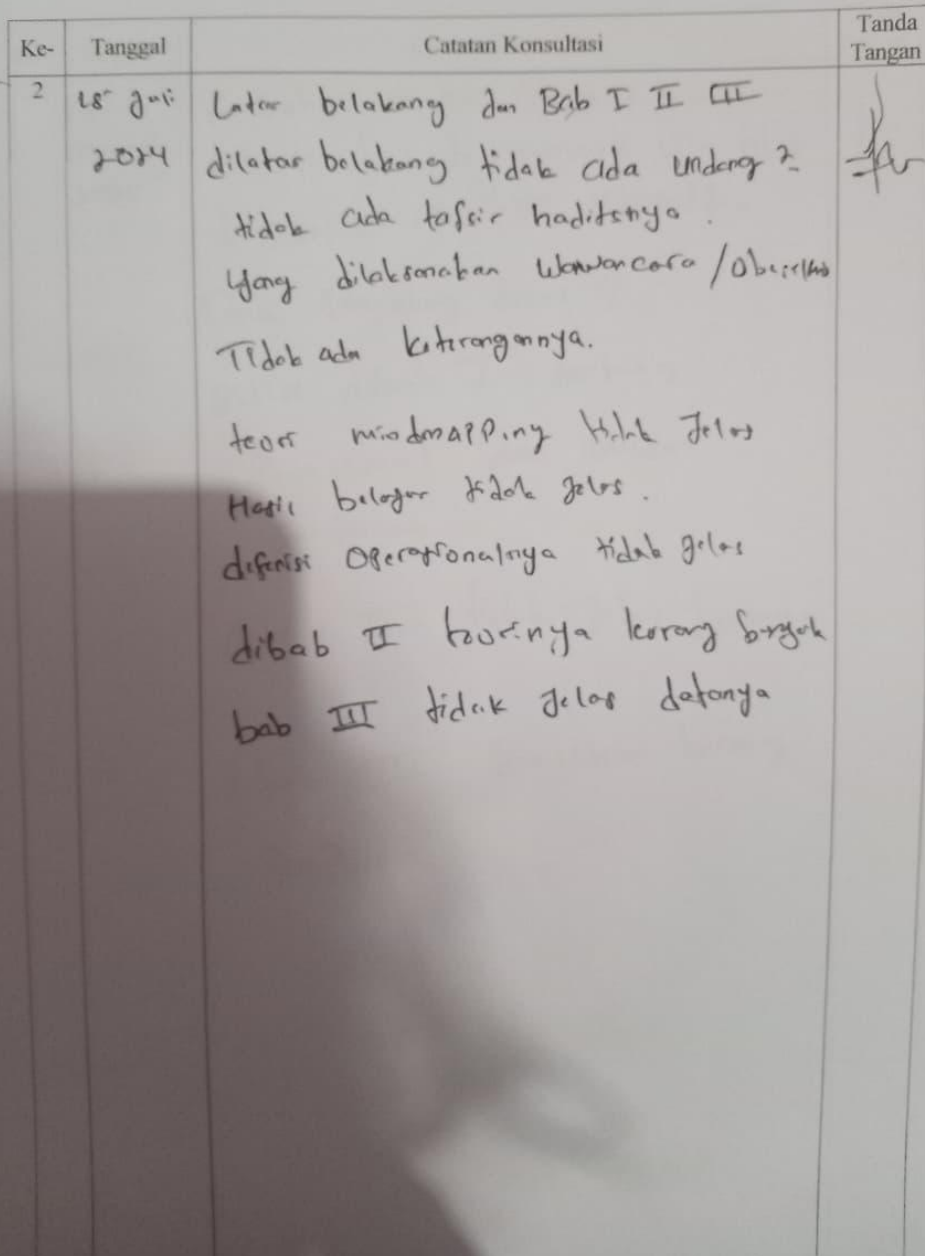 Ke- Tanggal Catatan Konsultasi Tanda Tangan
2 18 Juli Latar belakang dan Bab I II III
2024 dilatar belakang tidak ada undang2
tidak ada tafsir haditsnya.
Yang dilaksanakan wawancara /
Tidak ada keterangannya.
teori mindmapping tidak Jelas
Hasil belajar tidak jelas.
definisi Operasionalnya tidak jelas
dibab II teorinya kurang banyak
bab III tidak Jelas datanya